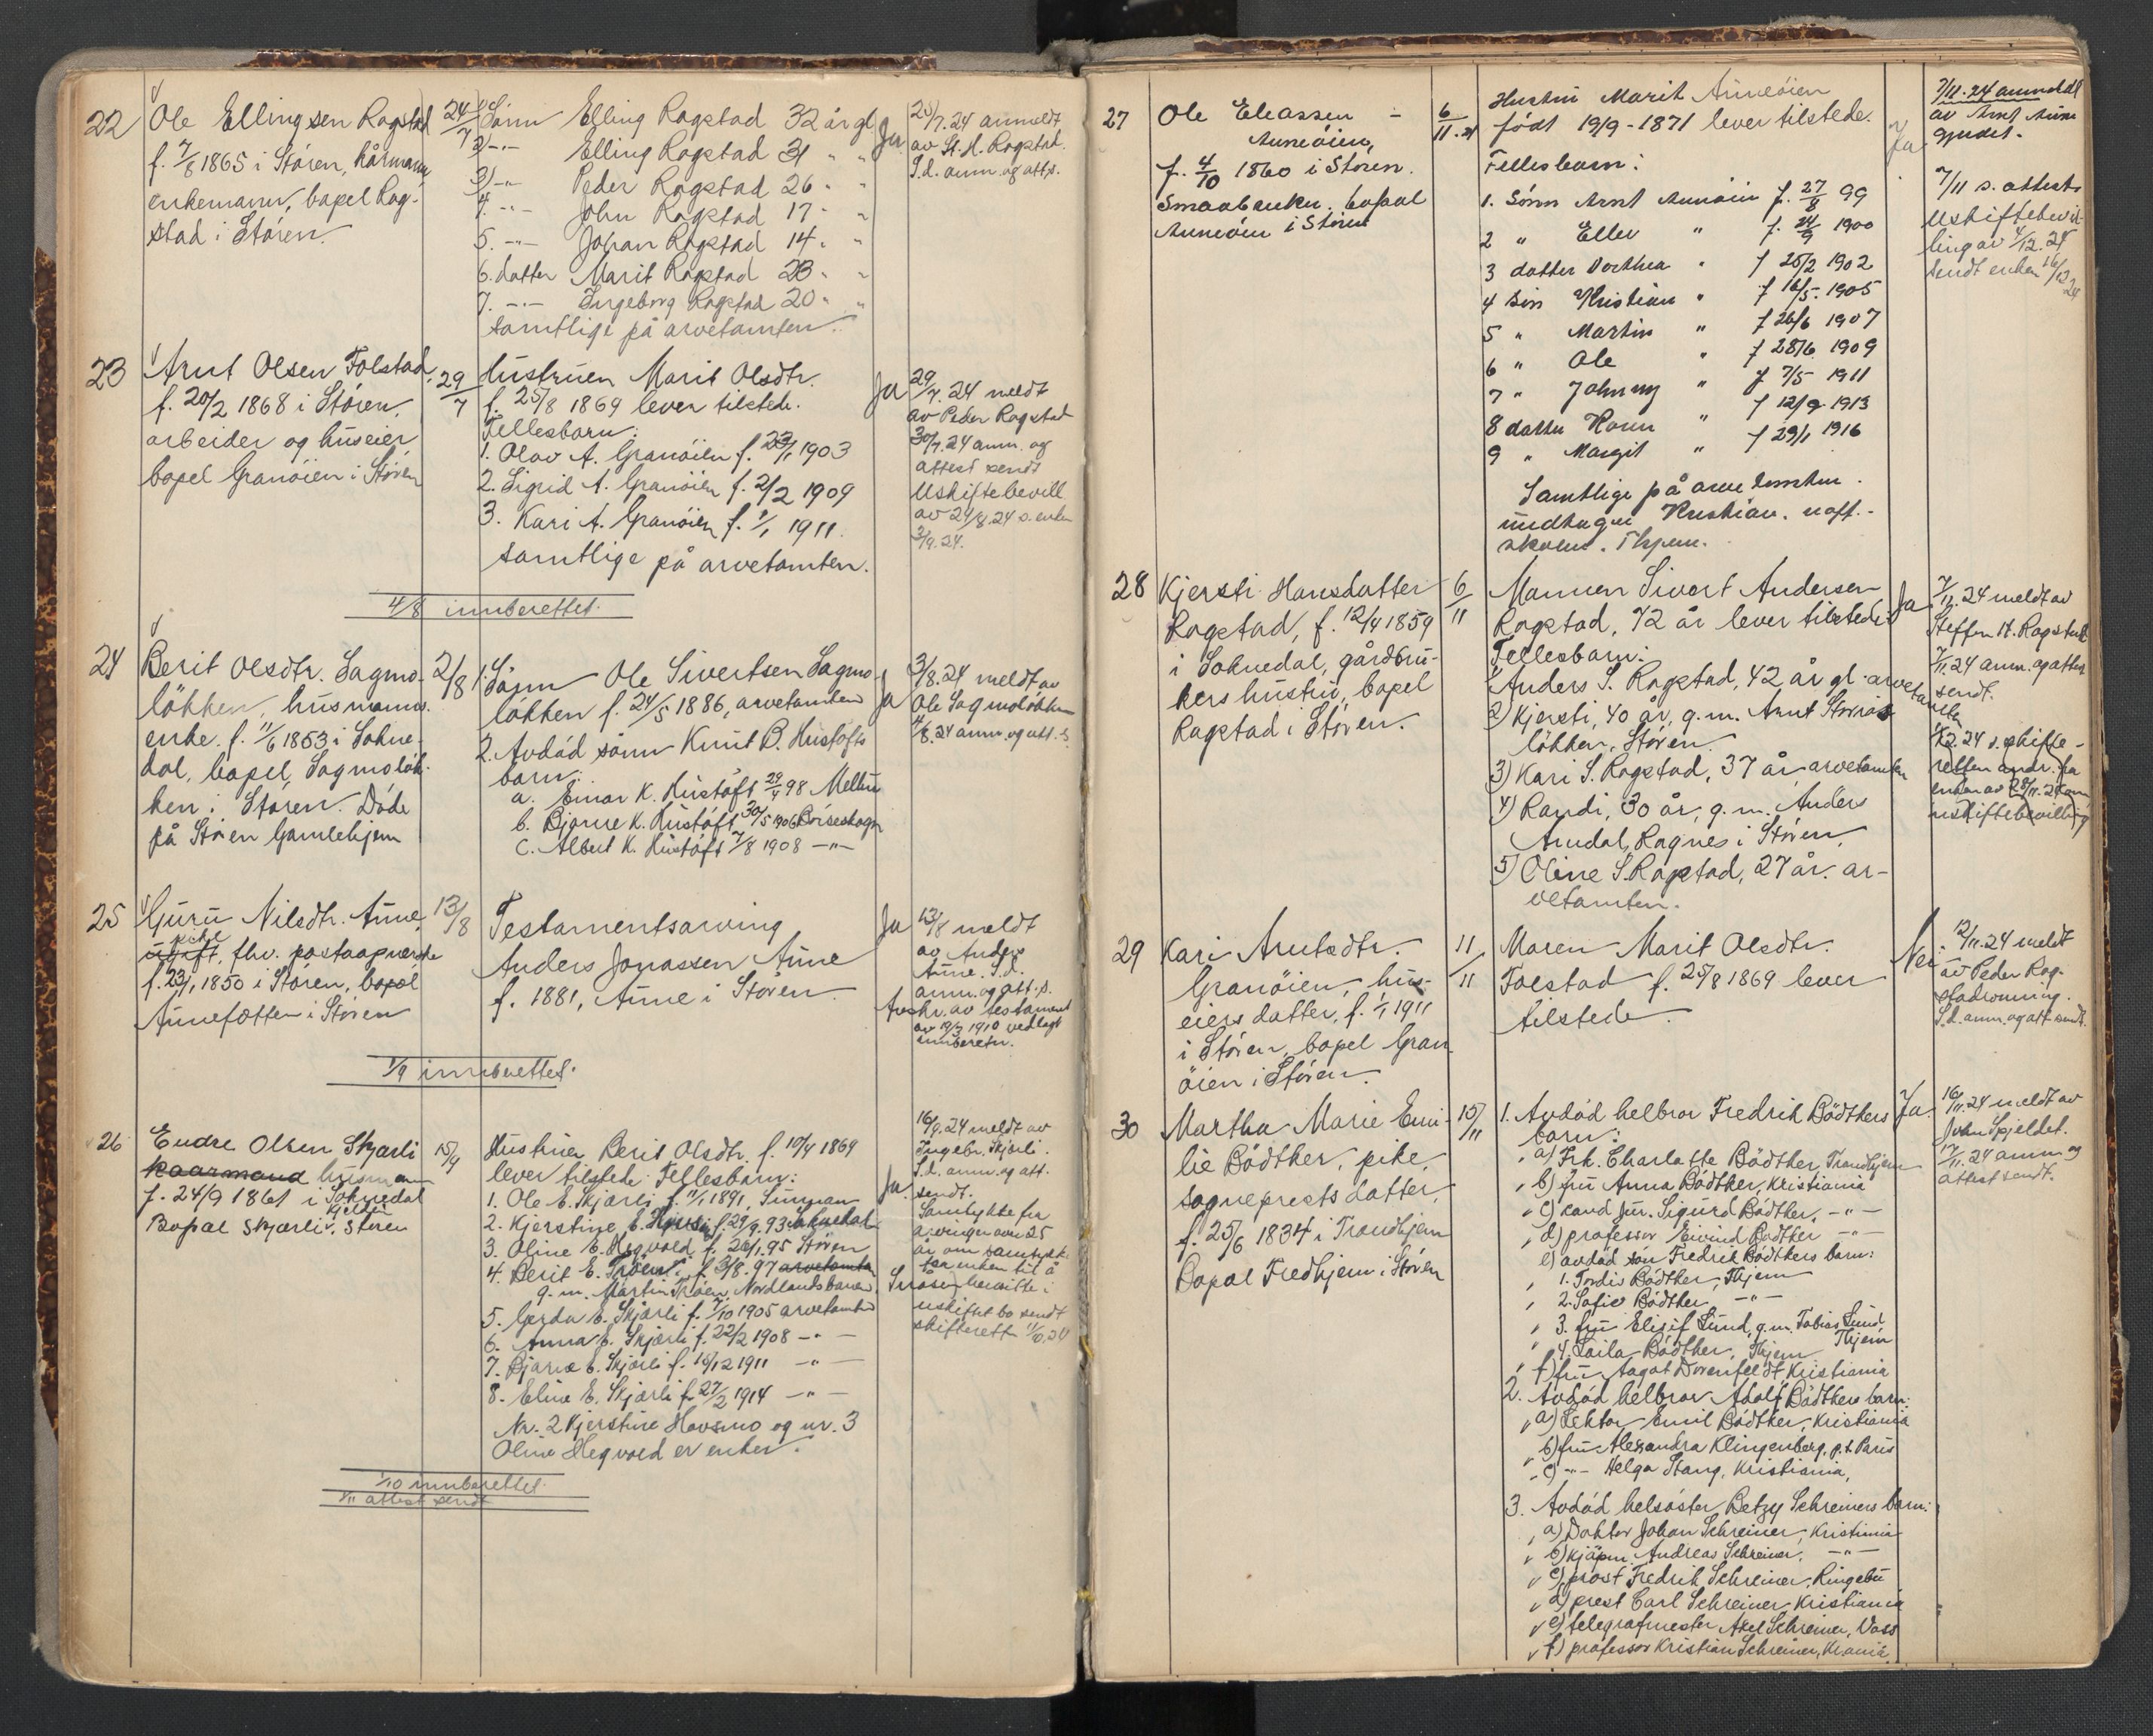 22
Ole Ellingsen Rogstad
f. 7/8 1865 i Støren, kårmann,
enkemann, bopel Rog-
stad i Støren.
24/7
1) Sønn Elling Rogstad 32 år gl.
2) -"- Elling Rogstad 31 " "
3) -"- Peder Rogstad 26 " "
4. -"- John Rogstad 17 " "
5. -"- Johan Rogstad 14 " "
6. datter Marit Rogstad 23 " "
7. -"- Ingeborg Rogstad 20 " "
samtlige på arvetomten.
Ja
25/7.24 anmeldt
av St. H. Rogstad.
S.d. anm. og att. s.
23
Arnt Olsen Folstad,
f. 20/2 1868 i Støren,
arbeider og huseier,
bopel Granøien i Støren
29/7
Hustruen Marit Olsdtr.
f. 25/8 1869 lever tilstede.
Fellesbarn:
1. Olav A. Granøien f. 23/1 1903
2. Sigrid A. Granøien f. 2/2 1909
3. Kari A. Granøien f. 1/1 1911.
samtlige på arvetomten.
Ja
29/7.24 meldt
av Peder Rogstad
30/7.24 anm. og
attest sendt
Uskiftebevill.
av 24/8.24 s. enken
3/9.24.
4/8 innberettet.
24
Berit Olsdtr. Sagmo-
løkken, husmanns-
enke. f. 11/6 1853 i Sokne-
dal, bopel, Sagmoløk-
ken i Støren. Døde
på Støren Gamlehjem
2/8
1. Sønn Ole Sivertsen Sagmo-
løkken f. 24/5 1886, arvetomten
2. Avdød sønn Knut B. Hustofts
barn:
a. Einar K. Hustoft 29/4 98 Melhus
b. Bjarne K. Hustoft 30/5 1906 Børseskogn
c. Albert K. Hustoft 7/8 1908 -"-
Ja
3/8.24 meldt av
Ole Sagmoløkken
4/8.24 anm. og att. s.
25
Guru Nilsdtr. Aune,
pike
ugift, fhv. postaapnerske
f. 23/1 1850 i Støren, bopel
Aunefætten i Støren
13/8
Testamentsarving
Anders Jonassen Aune
f. 1881, Aune i Støren.
Ja
13/8 meldt
av Anders
Aune. S.d.
anm. og att. s.
Avskr. av testament
av 19/3 1910 vedlagt
innberetn.
1/9 innberettet.
26
Endre Olsen Skjærli
kaarmand husmann
f. 24/9 1861 i Soknedal
Bopæl Skjærli, Støren
15/9
Hustruen Berit Olsdtr. f. 10/4 1869
lever tilstede. Fellesbarn:
1. Ole E. Skjærli f. 11/1 1891, Sunnan
2. Kjerstine E. f. 29/9.93 Soknedal
3. Oline E. Hegvold f. 26/1.95 Støren
4. Berit E. Trøen f. 3/8.97 arvetomten
g. m. Martin Trøen, Nordlandsbanen,
5. Gerda E. Skjærli f. 7/10 1905 arvetomten
6. Anna E. Skjærli f. 22/2 1908 -"-
7. Bjarne E. Skjærli f. 10/12 1911 -"-
8. Eline E. Skjærli f. 27/2 1914 -"-
Nr. 2 Kjerstine Hovsmo og nr. 3
Oline Hegvold er enker.
Ja.
16/9.24 meldt av
Ingebr. Skjærli.
S.d. anm. og att.
sendt.
Samtykke fra
arvinger over 25
år om samtykke
fra enken til å
besitte i
uskiftet bo sendt
skifterett
1/10 innberettet.
1/11 attest sendt
27
Ole Eleassen
Auneøien,
f. 4/10 1860 i Støren.
Smaabruker. bopæl
Auneøien i Støren
6/11.24
Hustru Marit Auneøien
født 19/9-1871 lever tilstede.
Fellesbarn:
1. Sønn Arnt Auneøien f. 27/8 99
2 " Ellev " f. 24/9 1900
3 datter Dorthea " f 25/2 1902
4 søn Kristian " f 16/5.1905
5 " Martin " f 26/6 1907
6 " Ole " f 28/6 1909
7 " Johnny " f 7/5 1911
8 datter " f 12/9 1913
9 " Margit " f 29/1 1916
Samtlige på arvetomten.
undtagen Kristian. uoff.-
skolen. Thjem.
Ja
7/11.24 anmeldt
av Arnt Aune
7/11 s. attests
Uskiftebevil-
ling av 4/12.24
sendt enken 16/12 24
28
Kjersti Hansdatter
Rogstad, f. 12/4 1859
i Soknedal, gårdbru-
kers hustru, bopel
Rogstad i Støren.
6/11
Mannen Sivert Andersen
Rogstad, 72 år lever tilstede.
Fellesbarn:
1) Anders S. Rogstad, 42 år gl. arvetomten
2) Kjersti, 40 år, g.m. Arnt
løkken, Støren.
3) Kari S. Rogstad, 37 år arvetomten
4) Randi, 30 år, g.m. Anders
Amdal, Rognes i Støren,
5) Oline S. Rogstad, 27 år. ar-
vetomten.
Ja
7/11.24 meldt av
Steffen H. Rogstad
7/11.24 anm. og attest
sendt.
1/12.24 s. skifte-
retten andr. fra
enken av 28/11.24 om
uskiftebevilling
29
Kari Arntsdtr.
Granøien, hus-
eiers datter, f. 1/1 1911
i Støren, bopel Gran-
øien i Støren.
11/11
Moren Marit Olsdtr.
Folstad f. 25/8 1869 lever
tilstede.
Nei
12/11.24 meldt
av Peder Rog-
stadronning.
S.d. anm. og att. sendt.
30
Martha Marie Emi-
lie Bødtker, pike,
sogneprests datter,
f. 25/6 1834 i Trondhjem
Bopæl Fredhjem i Støren
15/11
1. Avdød helbror Fredrik Bødtkers
barn:
a) Frk. Charlotte Bødtker, Trondhjem
b) fru Anna Bødtker, Kristiania
c) kand. jur. Sigurd Bødtker, -"-
d) professor Eivind Bødtker -"-
e) avdød søn Fredrik Bødtkers barn:
1. Tordis Bødtker, Thjem
2. Sofie Bødtker, -"-
3. fru Elisif Lund, g.m. Tobias Lund,
Thjem
4. Laila Bødtker, Thjem
f) fru Aagot Dorenfeldt Kristiania
2. Avdød helbror Adolf Bødtkers barn:
a) Lektor Emil Bødtker, Kristiania
b) fru Alexandra Klingenberg, p.t. Paris
c) -"- Helga Stang, Kristiania,
3. Avdød helsøster Betzy Schreiners barn:
a) Doktor Johan Schreiner, Kristiania
b) kjøpm. Andreas Schreiner, -"-
c) prost Fredrik Schreiner, Ringebu
d) prest Carl Schreiner, Kristiania
e) telegrafmester Axel Schreiner, Voss
f) professor Kristian Schreiner, Krania.
Ja.
16/11.24 meldt av
John Spjeldet.
17/11.24 anm. og
attest sendt.